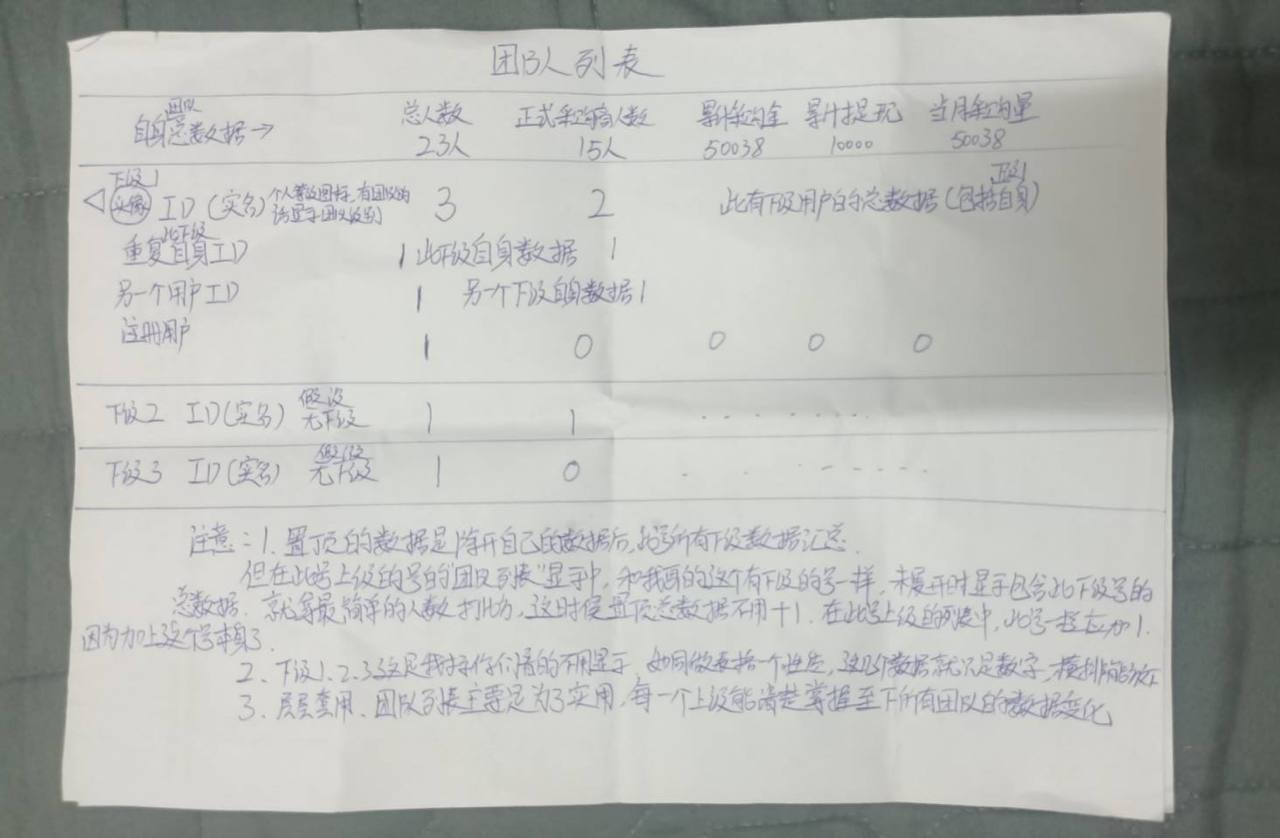 团队列表
团队
自身总数据→ 总人数 正式采购商人数 累计采购金 累计提现 当月采购量
23人 15人 50038 10000 50038
下级1 下级1
头像 ID(实名) 个人等级图标,有团级的 3 2 此有下级用户的总数据(包括自身)
话显示团队级别
此下级
重复自身ID 1 此下级自身数据 1
另一个用户ID 1 另一个下级自身数据 1
注册用户 1 0 0 0 0
下级2 ID(实名) 假设 无下级 1 1
下级3 ID(实名) 假设 无下级 1 0
注意:1. 置顶的数据是除开自己的数据后,所有下级数据汇总.
但在此号上级的号的"团队列表"显示中,和我画的这个有下级的号一样,未展开时显示包含此下级号的
总数据.就拿最简单的人数打比方,这时候置顶总数据不用+1.在此号上级的列表中,此号一栏应加1.
因为加上这个号本身了
2、下级1.2.3这是我打给你们看的不用显示,如同做表格一个性质,这几个数据就只是数字,横排
3、层层套用.团队列表主要是为了实用,每一个上级能清楚掌握至下所有团队的数据变化